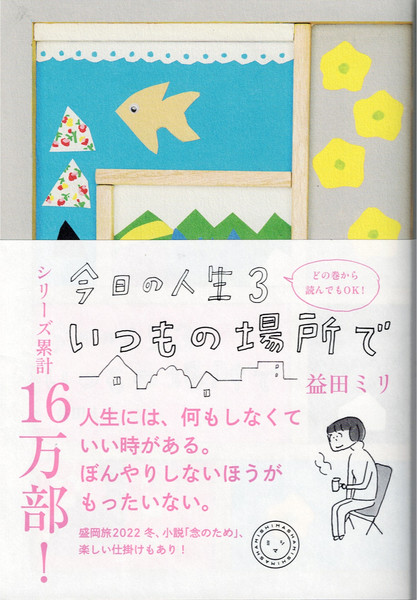 今日の人生3
いつもの場所で
どの巻から
読んでもOK!
益田ミリ
シリーズ累計
16万部!
人生には、何もしなくて
いい時がある。
ぼんやりしないほうが
もったいない。
盛岡旅2022冬、小説「念のため」、
楽しい仕掛けもあり!
ミシマ